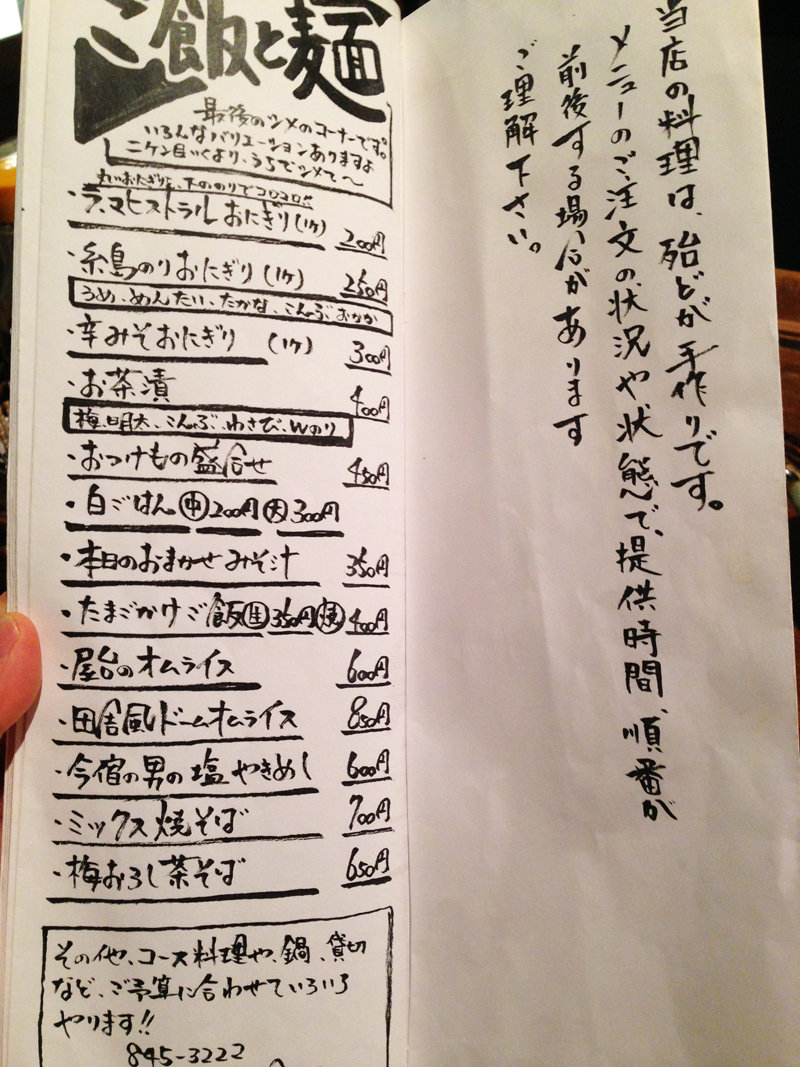 ご飯と麺
最後のシメのコーナーです。
いろんなバリエーションありますよ
ニケン目いくより、うちでシメて〜
丸いおにぎりを、下ののりでコロコロ!!
・ラ・マヒストラルおにぎり(1ヶ) 200円
・糸島のりおにぎり(1ヶ) 250円
うめ、めんたい、たかな、こんぶ、おかか
・辛みそおにぎり (1ヶ) 300円
・お茶漬 400円
梅、明太、こんぶ、わさび、Wのり
・おつけもの盛合せ 450円
・白ごはん 中 200円 大 300円
・本日のおまかせみそ汁 350円
・たまごかけご飯 生 350円 焼 400円
・屋台のオムライス 600円
・田舎風ドームオムライス 850円
・今宿の男の塩やきめし 600円
・ミックス焼そば 700円
・梅おろし茶そば 650円
その他、コース料理や、鍋、貸切
など、ご予算に合わせていろいろ
やります!!
845-3222
当店の料理は、殆どが手作りです。
メニューのご注文の状況や状態で、提供時間、順番が
前後する場合があります
ご理解下さい。